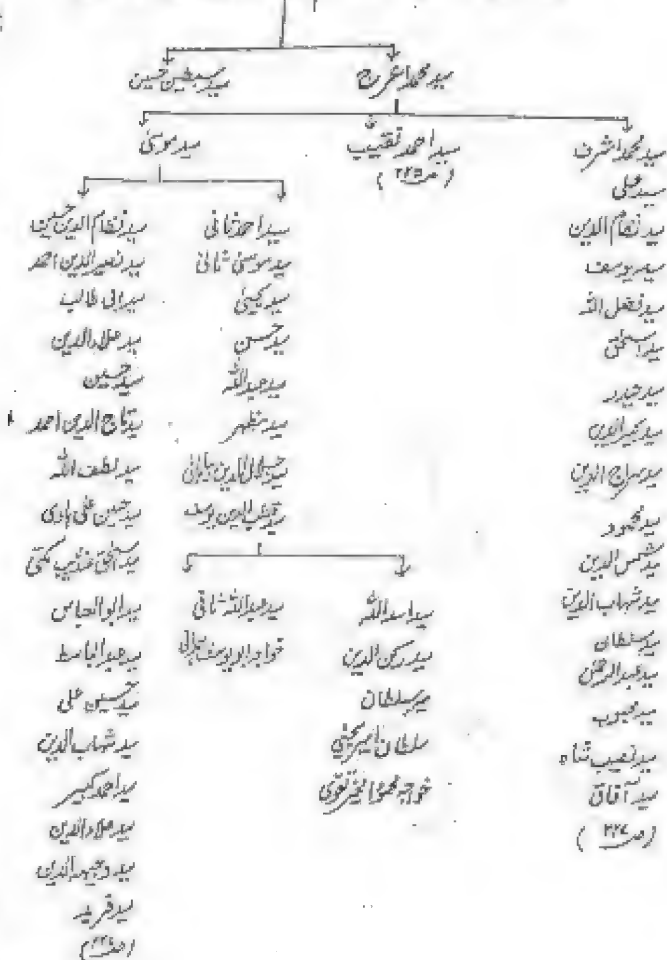 سید محمد اعرج
سید سبطین حسین
سید محمد اشرف
سید احمد نقیب
(ص ۲۲۵)
سید موسیٰ
سید علی
سید نظام الدین
سید یوسف
سید فضل اللہ
سید اسحٰق
سید حیدر
سید کبیر الدین
سید سراج الدین
سید محمود
سید شمس الدین
سید شہاب الدین
سید سلطان
سید عبد الرحمٰن
سید محبوب
سید نصیب شاہ
سید آفاق
(ص ۲۲۷)
سید احمد ثانی
سید موسیٰ ثانی
سید یحییٰ
سید حسن
سید عبد اللہ
سید مظہر
سید جلال الدین
سید قطب الدین یوسف
سید اسد اللہ
سید رکن الدین
میر سلطان
سلطان امیر یحییٰ
خواجہ تقوی
سید عبد اللہ ثانی
خواجہ ابو یوسف
سید نظام الدین حسین
سید نصیر الدین احمد
سید ابی طالب
سید علاء الدین
سید حسین
سید تاج الدین احمد
سید لطف اللہ
سید حسین علی ہادی
سید اسحٰق مکی
سید ابو العباس
سید عبد الباسط
سید حسین علی
سید شہاب الدین
سید احمد کبیر
سید علاء الدین
سید وجیہہ الدین
سید فرید